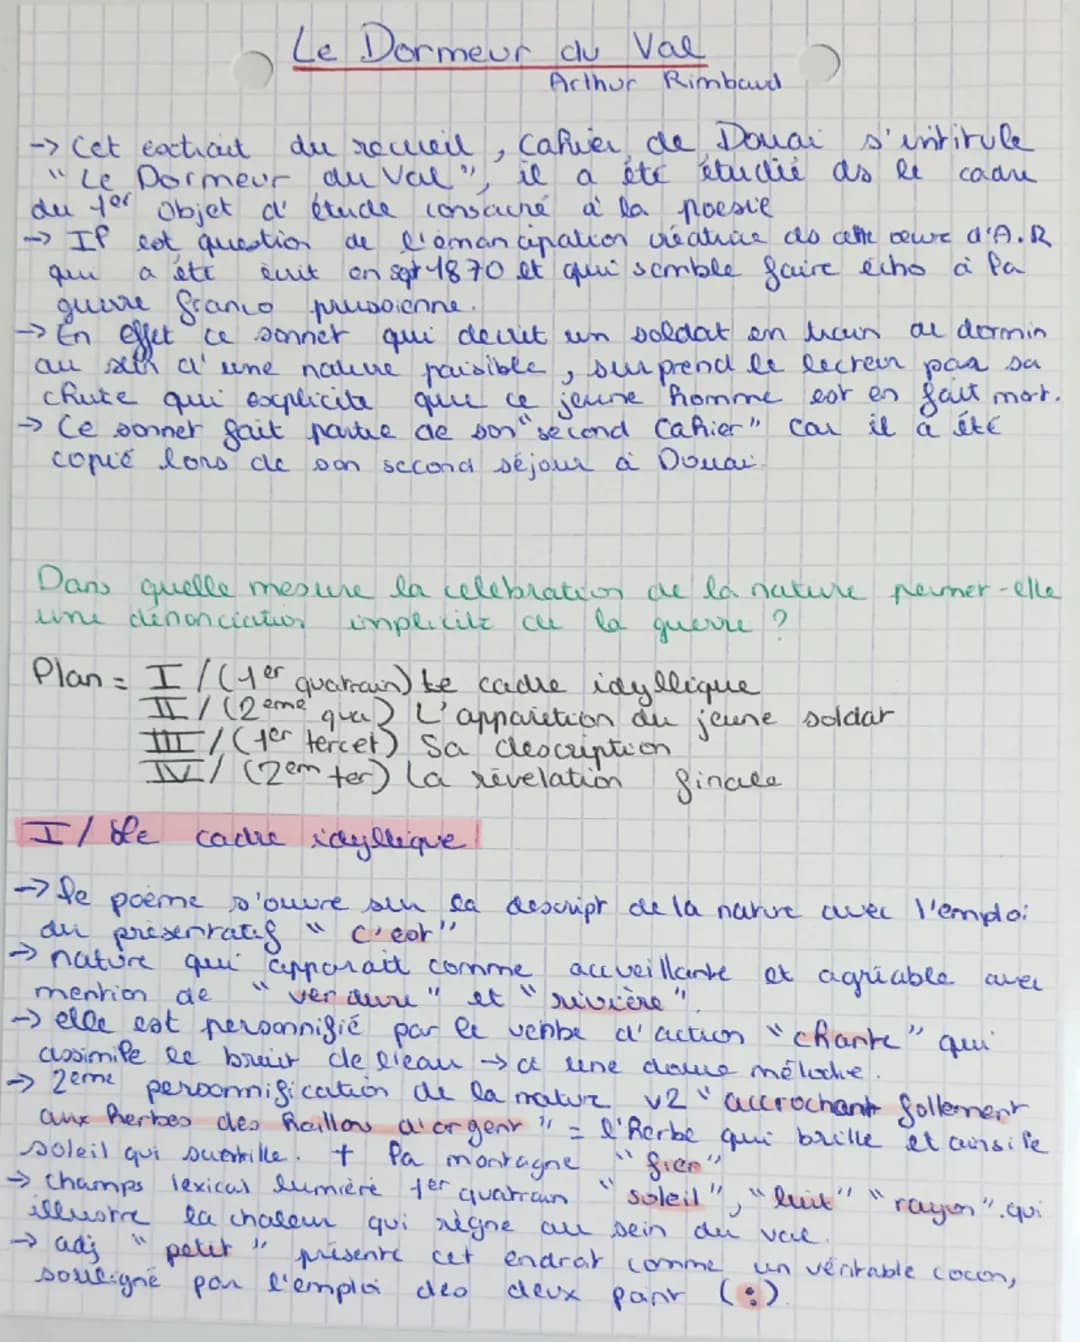 Le Dormeur du Val
Arthur Rimbaud
-> Cet extrait du recueil, Cahier de Douai s'intitule
"Le Dormeur du Val", il a été étudié ds le cadre
du 1er Objet d'étude consacré à la poesie
-> Il est question de l'émancipation créatrice ds cette oeuvre d'A.R
qui a été écrit en sept 1870 et qui semble faire écho à la
guerre franco prussienne.
-> En effet ce sonnet qui decrit un soldat en train de dormir
au sein d'une nature paisible, surprend le lecteur par sa
chute qui explicite que ce jeune homme est en fait mort.
-> Ce sonnet fait partie de son "second Cahier" car il a été
copié lors de son second séjour à Douai.
Dans quelle mesure la celebration de la nature permet-elle
une dénonciation implicite de la guerre ?
Plan = I/(1er quatrain) Le cadre idyllique
II/(2eme qua) L'apparition du jeune soldat
III/(1er tercet) Sa description
IV/(2em ter) La révelation finale
I/ Le cadre idyllique
-> Le poème s'ouvre sur la descript de la nature avec l'emploi
du présentatif "c'est"
-> nature qui apparait comme accueillante et agréable avec
mention de "verdure" et "rivière".
-> elle est personnifié par le verbe d'action "chante" qui
assimile le bruit de l'eau -> à une douce mélodie.
-> 2eme personnification de la nature v2 "accrochant follement
aux herbes des haillons d'argent" = l'herbe qui brille et ainsi le
soleil qui scintille. + la montagne "fier"
-> champs lexical lumière 1er quatrain "soleil", "luit" "rayon". qui
illustre la chaleur qui règne au sein du val.
-> adj "petit" présente cet endroit comme un véritable cocon,
souligné par l'emploi des deux point (:).